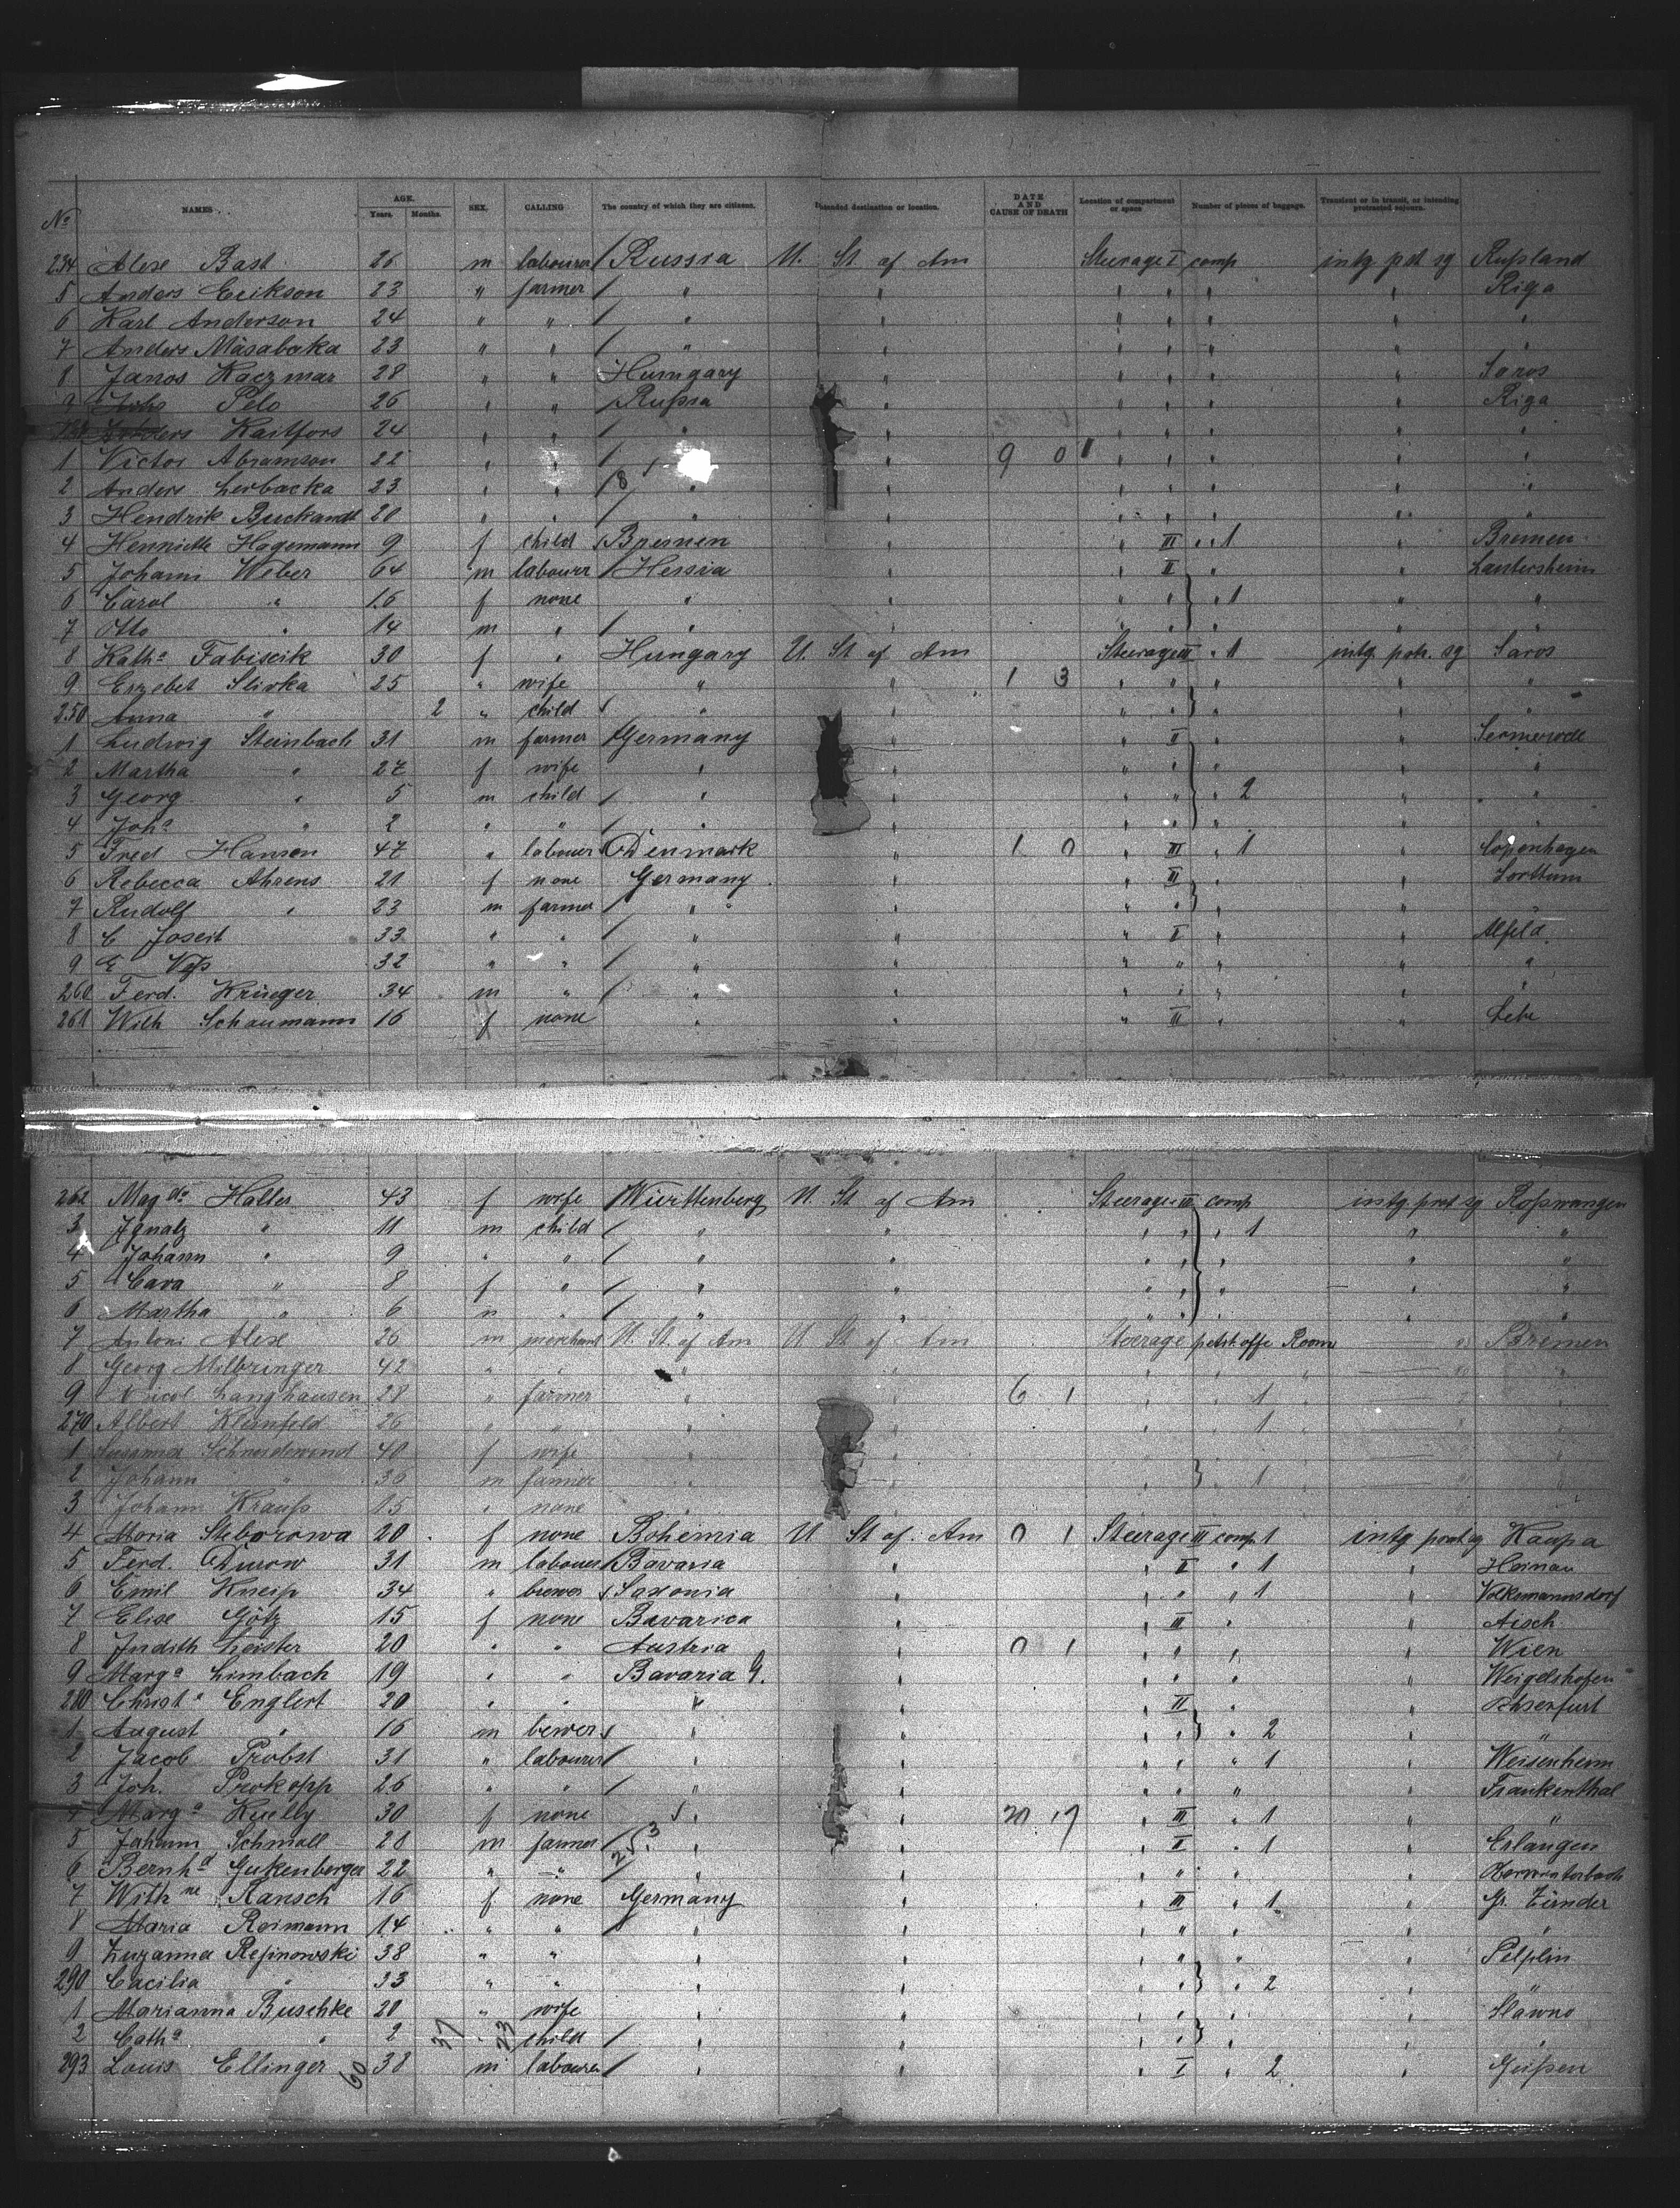 No NAMES AGE. Years. Months. SEX. CALLING The country of which they are citizens. Intended destination or location. DATE AND CAUSE OF DEATH Location of compartment or space Number of pieces of baggage. Transient or in transit, or intending protracted sojourn.
234 Alex Bast 26 m labourer Russia U. St. of Am Steerage I comp intg prt sg Rußland
5 Anders Erikson 23 " farmer / " " " " " " Riga
6 Karl Anderson 24 " " / " " " " " " "
7 Anders Måsabaka 23 " " / " " " " " " "
8 Janos Kaczmar 28 " " Hungary " " " " " Saros
9 Pelo 26 " " / Rußia " " " " " Riga
Anders Kaitfors 24 " " / " " " " " " "
1 Victor Abramson 22 " " / 9 01 " " " " "
2 Anders Lerbacka 23 " " / 8 " " " " " " "
3 Hendrik 20 " " / " " " " " " "
4 Henriette Hagemann 9 f child Bremen " " III " 1 " Bremen
5 Johann Weber 64 m labourer / Hessia " " II " "
6 Carol " 16 f none " " " " } " 1 " "
7 Otto " 14 m " / " " " " " " "
8 Kath a Fabiscik 30 f " Hungary U. St. of Am Steerage III " 1 intg prt. sg Saros
9 Erzebet Slivka 25 " wife " " 1 3 " " " " "
250 Anna " 2 " child " " " " } " " "
1 Ludwig Steinbach 31 m farmer / Germany " " II " "
2 Martha " 27 f wife " " " " " " "
3 Georg " 5 m child / " " " " } " 2 " "
4 Joh a " 2 " " / " " " " " " "
5 Fred Hansen 47 " labourer Denmark " 1 0 " III " 1 " Copenhagen
6 Rebecca Ahrens 21 f none Germany " " III " "
7 Rudolf " 23 m farmer / " " " " } " " "
8 C Joseit 33 " " / " " " I " " Alfeld
9 E Voß 32 " " / " " " " " " "
260 Ferd. Krüger 34 m " / " " " " " " "
261 Wilh Schaumann 16 f none " " " III " " Lehe
262 Mag da Halter 43 f wife / Württenberg U. St. of Am Steerage III comp intg prt sg Roßwangen
3 Ignatz " 11 m child / " " " " } " 1 " "
4 Johann " 9 " " / " " " " " " "
5 Cara " 8 f " / " " " " " " "
6 Martha " 6 " " / " " " " " " "
7 Antoni Alex 26 m merchant U. St. of Am U. St. of Am Steerage Room " Bremen
8 Georg Milbringer 42 " " " " " " " "
9 Nicol Langhausen 28 " farmer " " 6 1 " " 1 " "
270 Albert Kleinfeld 26 " " " " " " 1 " "
1 Susanna Schneidewind 40 f wife " " " " " "
2 Johann " 36 m farmer " " " } " 1 " "
3 Johann Krauß 15 " none " " " " " "
4 Maria Steborowa 20 f none Bohemia U. St. of Am 0 1 Steerage III comp 1 intg prt sg Kaupa
5 Ferd. Durow 31 m labourer / Bavaria " " II " 1 " Hainau
6 Emil Kneip 34 " brewer Saxonia " " " " 1 " Volksmannsdorf
7 Elise Götz 15 f none Bavarica " " III " " Aisch
8 Judith Leister 20 " " Austria " 0 1 " " " " Wien
9 Marg a Limbach 19 " " Bavaria G. " " " " " Weigelshofen
280 Christ a Englert 20 " " " " " III " " Ochsenfurt
1 August " 16 m bewer " " " " } " 2 " "
2 Jacob Probst 31 " labourer / " " " " " 1 " Weisenheim
3 Joh. Prokopp 26 " " / " " " " " " Frankenthal
4 Marg a Kuelly 30 f none " " 20 17 " III " 1 " "
5 Johann Schmall 28 m farmer / 25 3 " " " II " 1 " Erlangen
6 Bernh d Gukenberger 22 " " / " " " " " "
7 Wilh ne Ransch 16 f none Germany " " III " 1 " Gr. Zünder
8 Maria Reimann 14 " " " " " " " " "
9 Zuzanna Resinowski 38 " " " " " " " " Pelplin
290 Cacilia " 33 " " " " " " } " 2 " "
1 Marianna Buschke 20 " wife " " " " " " Slawno
2 Cath a " 2 37 " 23 child / " " " " } " " "
293 Louis Ellinger 60 38 m labourer / " " " I " 2 " Gießen